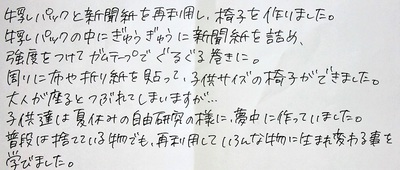 牛乳パックと新聞紙を再利用し、椅子を作りました。
牛乳パックの中にぎゅうぎゅうに新聞紙を詰め、
強度をつけてガムテープでぐるぐる巻きに。
周りに布や折り紙を貼って、子供サイズの椅子ができました。
大人が座るとつぶれてしまいますが…
子供達は夏休みの自由研究の様に、夢中に作っていました。
普段は捨てている物でも、再利用していろんな物に生まれ変わる事を
学びました。